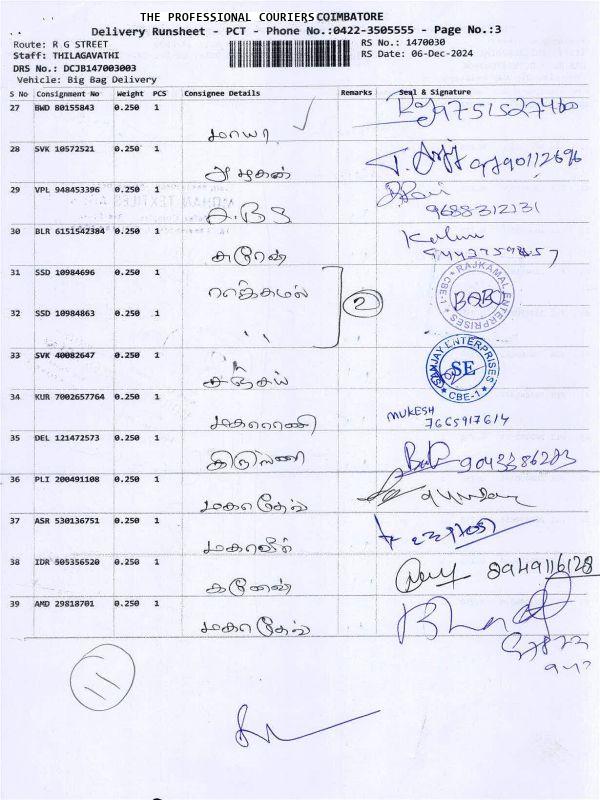 THE PROFESSIONAL COURIERS COIMBATORE
Delivery Runsheet - PCT - Phone No.:0422-3505555 - Page No.:3
Route: R G STREET RS No.: 1470030
Staff: THILAGAVATHI RS Date: 06-Dec-2024
DRS No.: DCJB147003003
Vehicle: Big Bag Delivery
S No Consignment No Weight PCS Consignee Details Remarks Seal & Signature
27 BWD 80155843 0.250 1
மாயா
28 SVK 10572521 0.250 1
29 VPL 948453396 0.250 1
9688312131
30 BLR 6151542384 0.250 1
31 SSD 10984696 0.250 1
ராஜ்கமல் 2
RAJKAMAL ENTERPRISES CBE-1
BABU
32 SSD 10984863 0.250 1
" "
33 SVK 40082647 0.250 1
சஞ்சய்
SANJAY ENTERPRISES SE CBE-1
34 KUR 7002657764 0.250 1
மகாராணி
MUKESH
7665917614
35 DEL 121472573 0.250 1
36 PLI 200491108 0.250 1
மகாதேவ்
37 ASR 530136751 0.250 1
மகாவீர்
38 IDR 505356520 0.250 1
கணேஷ் 8949116128
39 AMD 29818701 0.250 1
மகாதேவ் Bharat